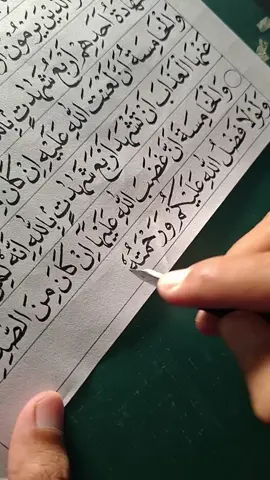 وَالَّذِينَ يَرْمُونَ
أَحَدِهِمْ أَرْبَعُ شَهَادَاتٍ
وَالْخَامِسَةُ أَنَّ لَعْنَتَ اللَّهِ عَلَيْهِ إِنْ كَانَ
عَنْهَا الْعَذَابَ أَنْ تَشْهَدَ أَرْبَعَ شَهَادَاتٍ بِاللَّهِ إِنَّهُ
وَالْخَامِسَةَ أَنَّ غَضَبَ اللَّهِ عَلَيْهَا إِنْ كَانَ مِنَ
وَلَوْلَا فَضْلُ اللَّهِ عَلَيْكُمْ وَرَحْمَتُهُ